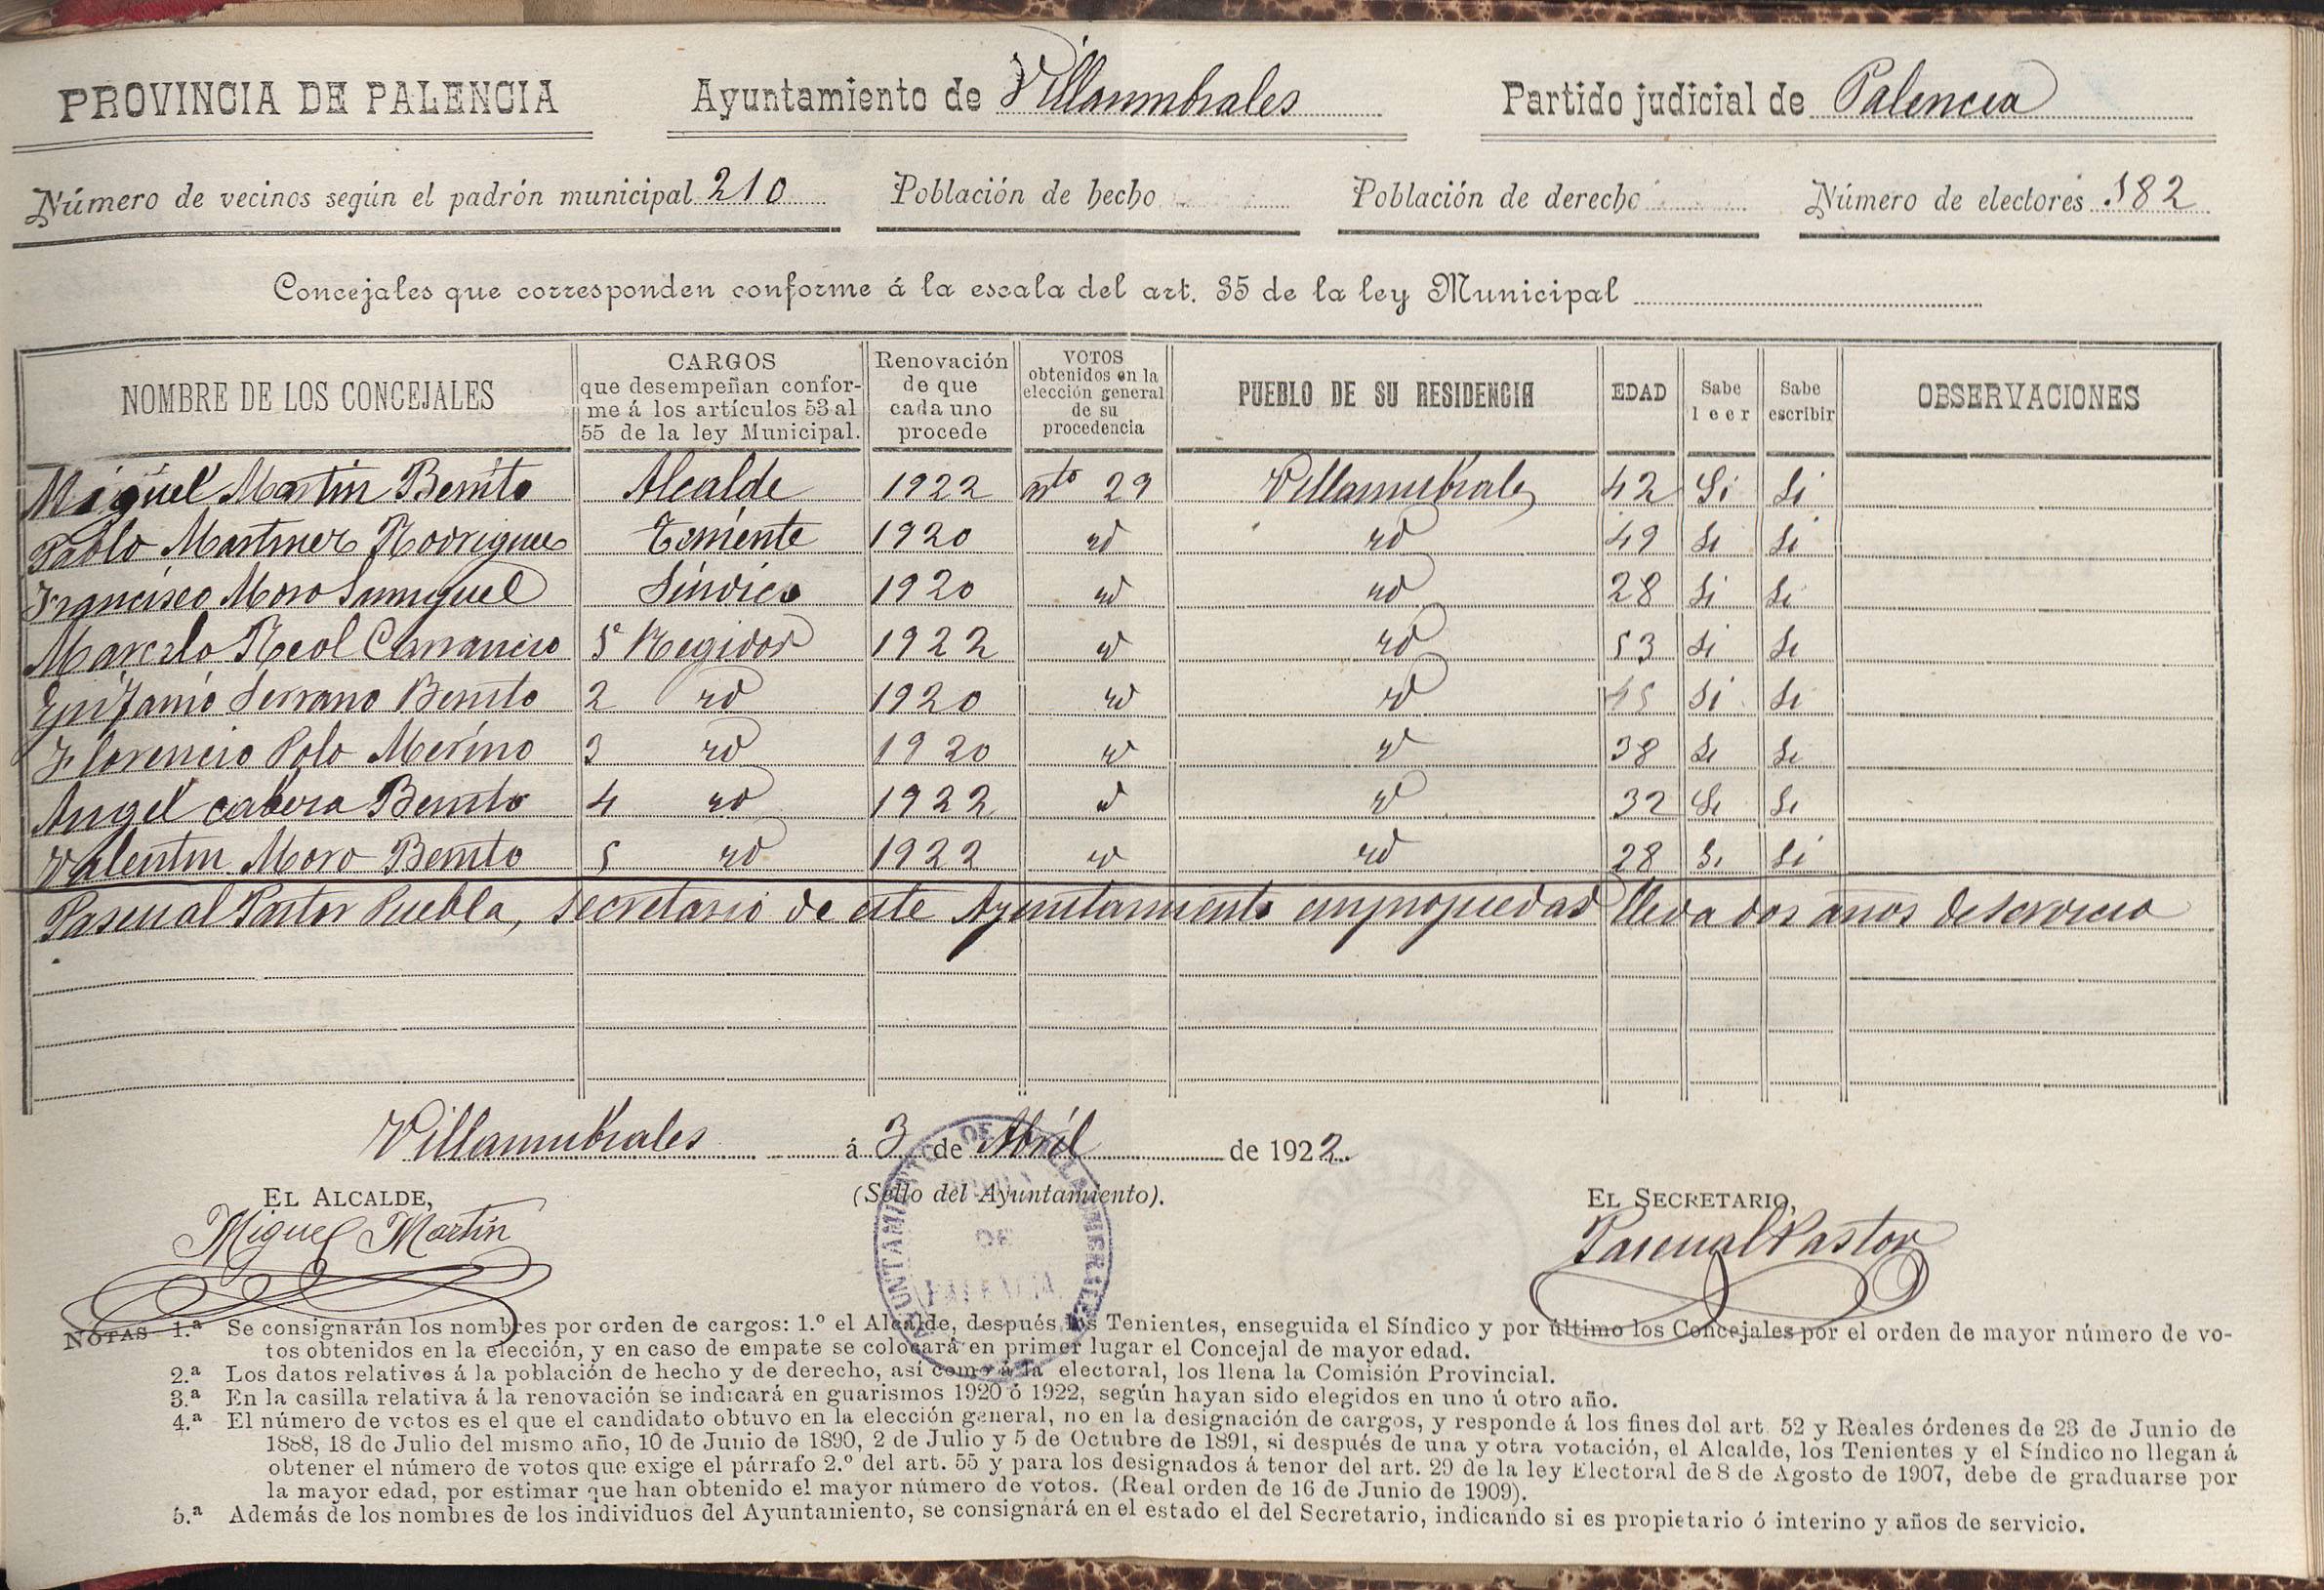 PROVINCIA DE PALENCIA Ayuntamiento de Villaumbrales Partido judicial de Palencia
Número de vecinos según el padrón municipal 210 Población de hecho Población de derecho Número de electores 182
Concejales que corresponden conforme á la escala del art. 35 de la ley Municipal
NOMBRE DE LOS CONCEJALES
CARGOS
que desempeñan confor-
me á los artículos 53 al
55 de la ley Municipal.
Renovación
de que
cada uno
procede
VOTOS
obtenidos en la
elección general
de su
procedencia
PUEBLO DE SU RESIDENCIA
EDAD
Sabe
leer
Sabe
escribir
OBSERVACIONES
Miguel Martin Benito Alcalde 1922 29 Villaumbrales 42 Si Si
Pablo Martinez Rodriguez Teniente 1920 id id 49 Si Si
Francisco Moro Sumiguel Sindico 1920 id id 28 Si Si
Marcelo Reol Carrancio Regidor 1922 id id 53 Si Si
Epifanio Serrano Benito 2 id 1920 id id 45 Si Si
Florencio Polo Merino 3 id 1920 id id 38 Si Si
Angel cabeza Benito 4 id 1922 id id 32 Si Si
Valentin Moro Benito 5 id 1922 id id 28 Si Si
Pascual Pastor Puebla, Secretario de este Ayuntamiento en propiedad lleva dos años de servicio
Villaumbrales á 3 de Abril de 1922.
EL ALCALDE, (Sello del Ayuntamiento). EL SECRETARIO,
Miguel Martin Pascual Pastor
AYUNTAMIENTO DE VILLAUMBRALES
DE
PALENCIA
NOTAS 1.ª Se consignarán los nombres por orden de cargos: 1.º el Alcalde, después los Tenientes, enseguida el Síndico y por último los Concejales por el orden de mayor número de vo-
tos obtenidos en la elección, y en caso de empate se colocará en primer lugar el Concejal de mayor edad.
2.ª Los datos relativos á la población de hecho y de derecho, así como á la electoral, los llena la Comisión Provincial.
3.ª En la casilla relativa á la renovación se indicará en guarismos 1920 ó 1922, según hayan sido elegidos en uno ú otro año.
4.ª El número de votos es el que el candidato obtuvo en la elección general, no en la designación de cargos, y responde á los fines del art. 52 y Reales órdenes de 23 de Junio de
1888, 18 de Julio del mismo año, 10 de Junio de 1890, 2 de Julio y 5 de Octubre de 1891, si después de una y otra votación, el Alcalde, los Tenientes y el Síndico no llegan á
obtener el número de votos que exige el párrafo 2.º del art. 55 y para los designados á tenor del art. 29 de la ley Electoral de 8 de Agosto de 1907, debe de graduarse por
la mayor edad, por estimar que han obtenido el mayor número de votos. (Real orden de 16 de Junio de 1909).
5.ª Además de los nombres de los individuos del Ayuntamiento, se consignará en el estado el del Secretario, indicando si es propietario ó interino y años de servicio.